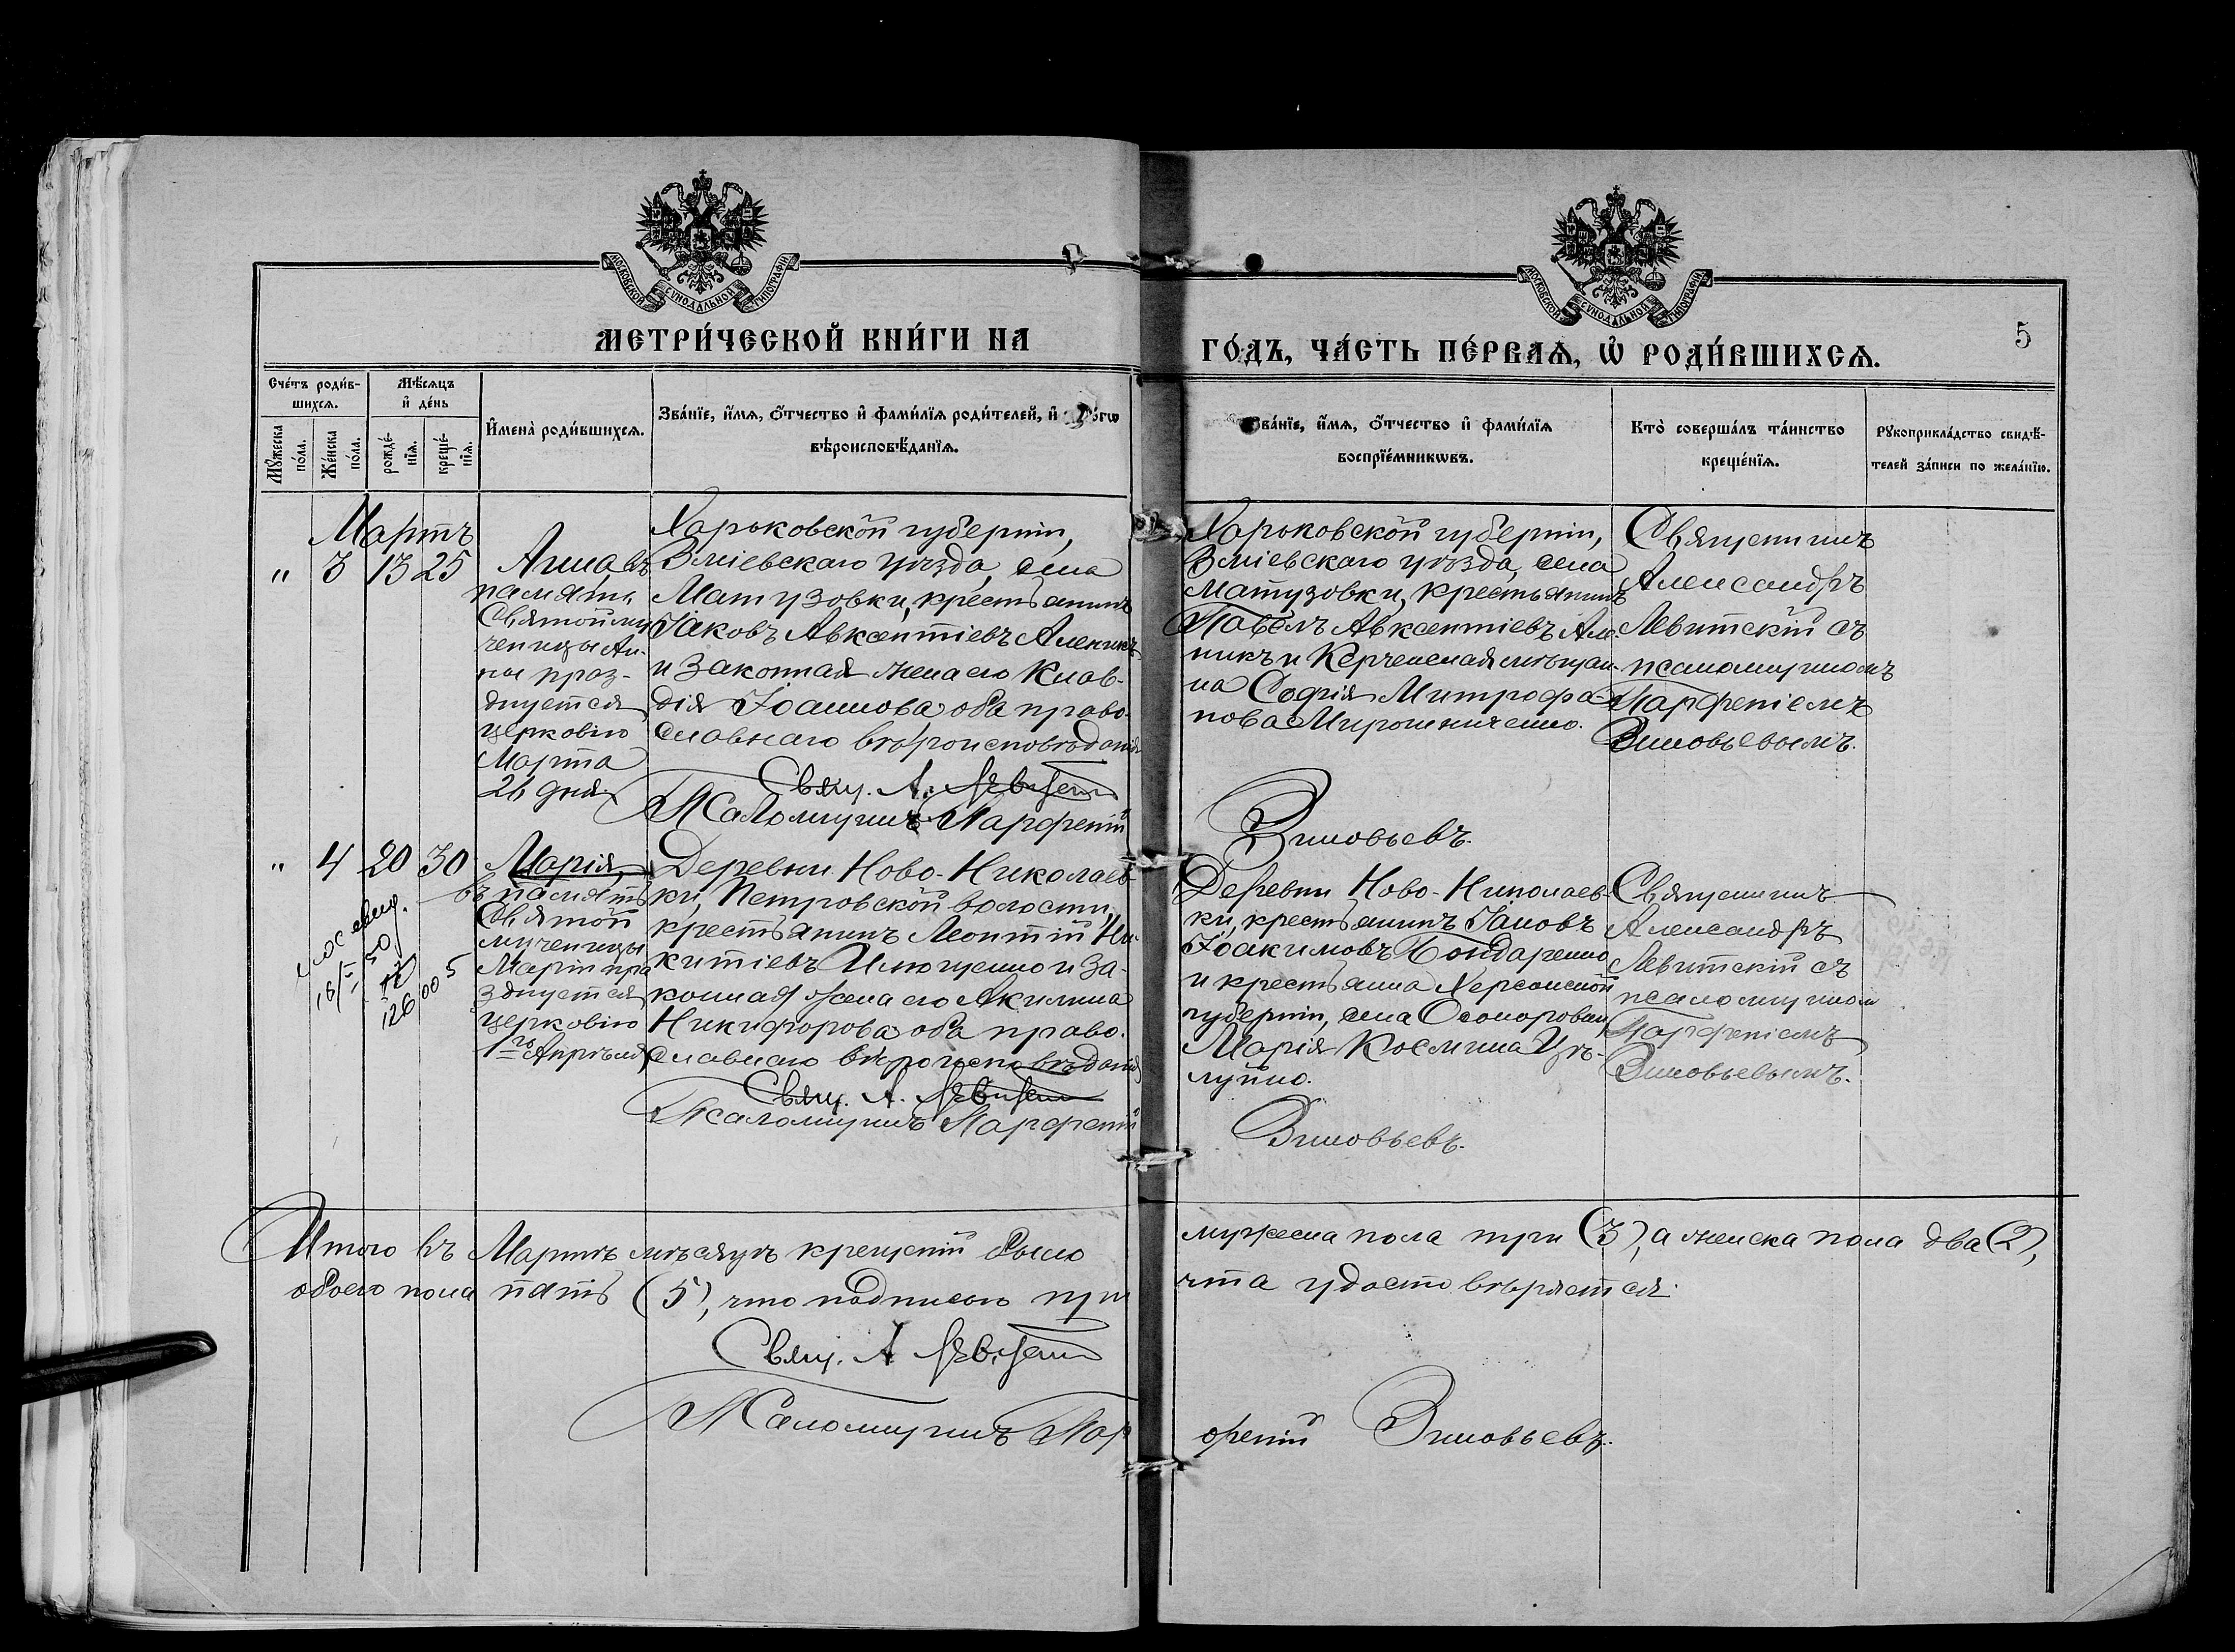 МОСКОВСКОЙ СѴНОДАЛЬНОЙ ТИПОГРАФІИ
МОСКОВСКОЙ СѴНОДАЛЬНОЙ ТИПОГРАФІИ
МЕТРИ́ЧЕСКОЙ КНИ́ГИ НА
ГО́ДЪ, ЧА́СТЬ ПЕ́РВАѦ, Ѡ҆ РОДИ́ВШИХСѦ.
5
Сче́тъ роди́в-
шихсѧ.
Мѣ́сѧцъ
и҆ де́нь
Мꙋ́жеска
по́ла.
Же́нска
по́ла.
рожде́-
нїѧ.
креще́-
нїѧ.
И҆мена̀ роди́вшихсѧ.
Зва́нїе, и҆́мѧ, ѻ҆́тчество и҆ фами́лїѧ роди́телей, и҆
вѣроисповѣ́данїѧ.
Зва́нїе, и҆́мѧ, ѻ҆́тчество и҆ фами́лїѧ
воспрїе́мникѡвъ.
Кто̀ соверша́лъ та́инство
креще́нїѧ.
Рꙋкоприкла́дство свидѣ́-
телей за́писи по жела́нїю.
Мартъ
" 3 13 25
Анна, въ
память
Святой му
ченицы Ан-
ны праз-
днуется
церковію
Марта
26 дня.
Харьковской губерніи,
Зміевскаго уѣзда, села
Матузовки, крестьянинъ
Іаковъ Авксентіевъ Алени́къ
и законная жена его Клав-
дія Іоаннова, оба право-
славнаго вѣроисповѣданія
Свящ. А. Левитскій
Псаломщикъ Парфеній
Харьковской губерніи,
Зміевскаго уѣзда, села
Матузовки, крестьянинъ
Павелъ Авксентіевъ Але-
никъ и Керченская мѣщан-
ка Софія Митрофа-
нова Мирошниченко.
Зиновьевъ.
Священникъ
Александръ
Левитскій съ
псаломщикомъ
Парфеніемъ
Зиновьевымъ.
" 4 20 30
Марія,
въ память
Святой
мученицы
Маріи пра
зднуется
церковію
1го Апрѣля
Деревни Ново-Николаев-
ки, Петровской волости,
крестьянинъ Леонтій Ни-
китіевъ Ильющенко и за-
конная жена его Акилина
Никифорова, оба право-
славнаго вѣроисповѣданія
Свящ. А. Левитскій
Псаломщикъ Парфеній
Деревни Ново-Николаев-
ки, крестьянинъ Іаковъ
Іоакимовъ Бондаренко
и крестьянка Херсонской
губерніи, села
Марія Космина Цѣ-
луйко.
Зиновьевъ.
Священникъ
Александръ
Левитскій съ
псаломщиком
Парфеніемъ
Зиновьевымъ.
Итого въ Мартѣ мѣсяцѣ крещеній было
мужеска пола три (3), а женска пола два (2),
обоего пола пять (5), что подписью при
чта удостовѣряется.
Свящ. А Левитскій
Псаломщикъ Пар
феній Зиновьевъ.